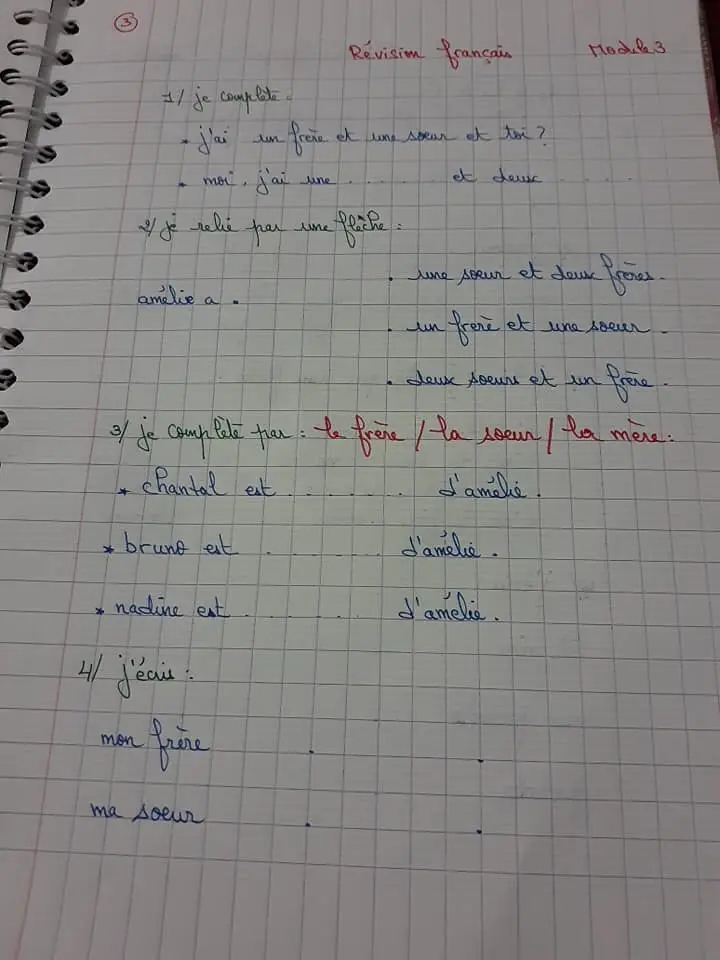 3
Révision français Module 3
1/ je complète.
* j'ai un frère et une soeur et toi ?
* moi, j'ai une ........ et deux ........
2/ je relié par une flèche :
. une soeur et deux frères.
amélie a .
. un frère et une soeur.
. deux soeurs et un frère.
3/ je complète par : le frère / la soeur / la mère :
* chantal est ........ d'amélié.
* bruno est ........ d'amélie.
* nadine est ........ d'amélie.
4/ j'écris :
mon frère . .
ma soeur . .